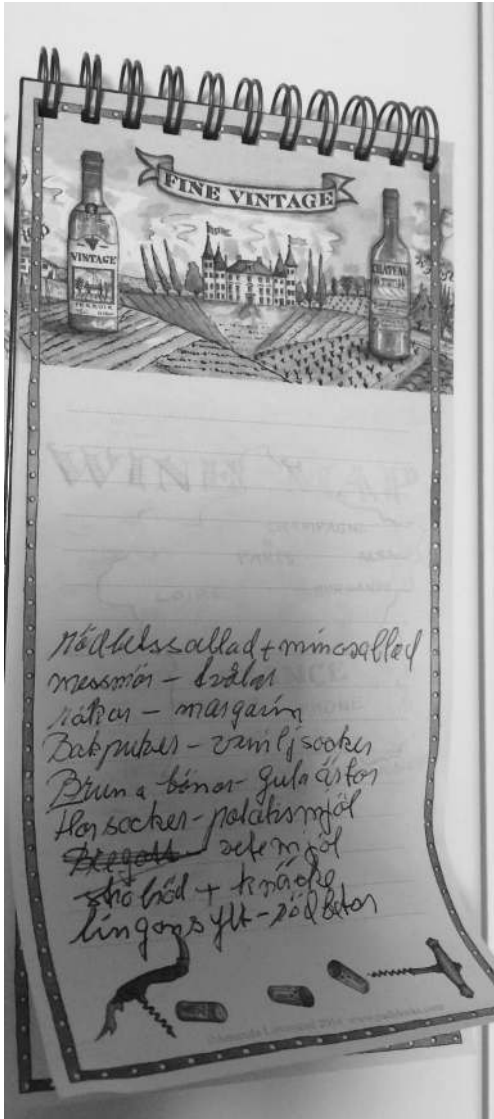 FINE VINTAGE
VINTAGE
CHATEAU
WINE MAP
CHAMPAGNE
PARIS
LOIRE
rödbetssallad + mimosallad
messmör - tvålar
räkor - margarin
Bakpulver - vaniljsocker
Bruna bönor - gula ärtor
Florsocker - potatismjöl
Bregott vetemjöl
ströbröd + knäcke
lingonsylt - rödbetor